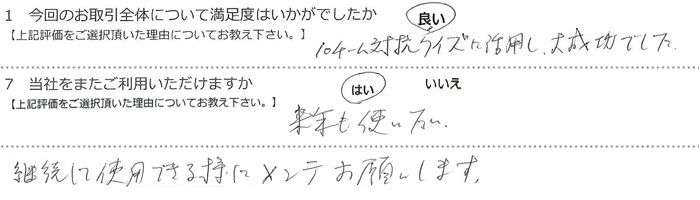 1 今回のお取引全体について満足度はいかがでしたか 良い
【上記評価をご選択頂いた理由についてお教え下さい。】
10チーム対抗クイズに活用し、大成功でした。
7 当社をまたご利用いただけますか はい いいえ
【上記評価をご選択頂いた理由についてお教え下さい。】
来年も使いたい。
継続して使用できる様にメンテお願いします。